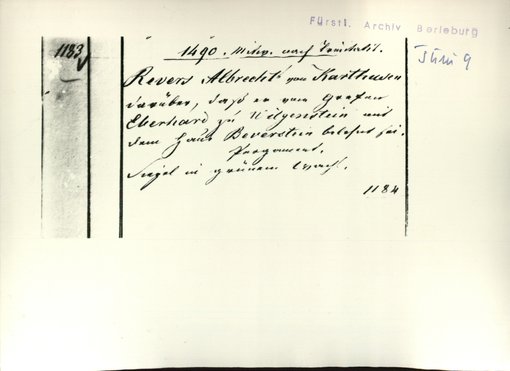 Fürstl. Archiv Berleburg
1183
1490. Mittw. nach
Revers Albrecht von Karthusen
darüber, daß er vom Grafen
Eberhard zu Witgenstein mit
dem Haus Beverstein belehnt sei.
Pergament.
Siegel in grünem Wachs.
1184